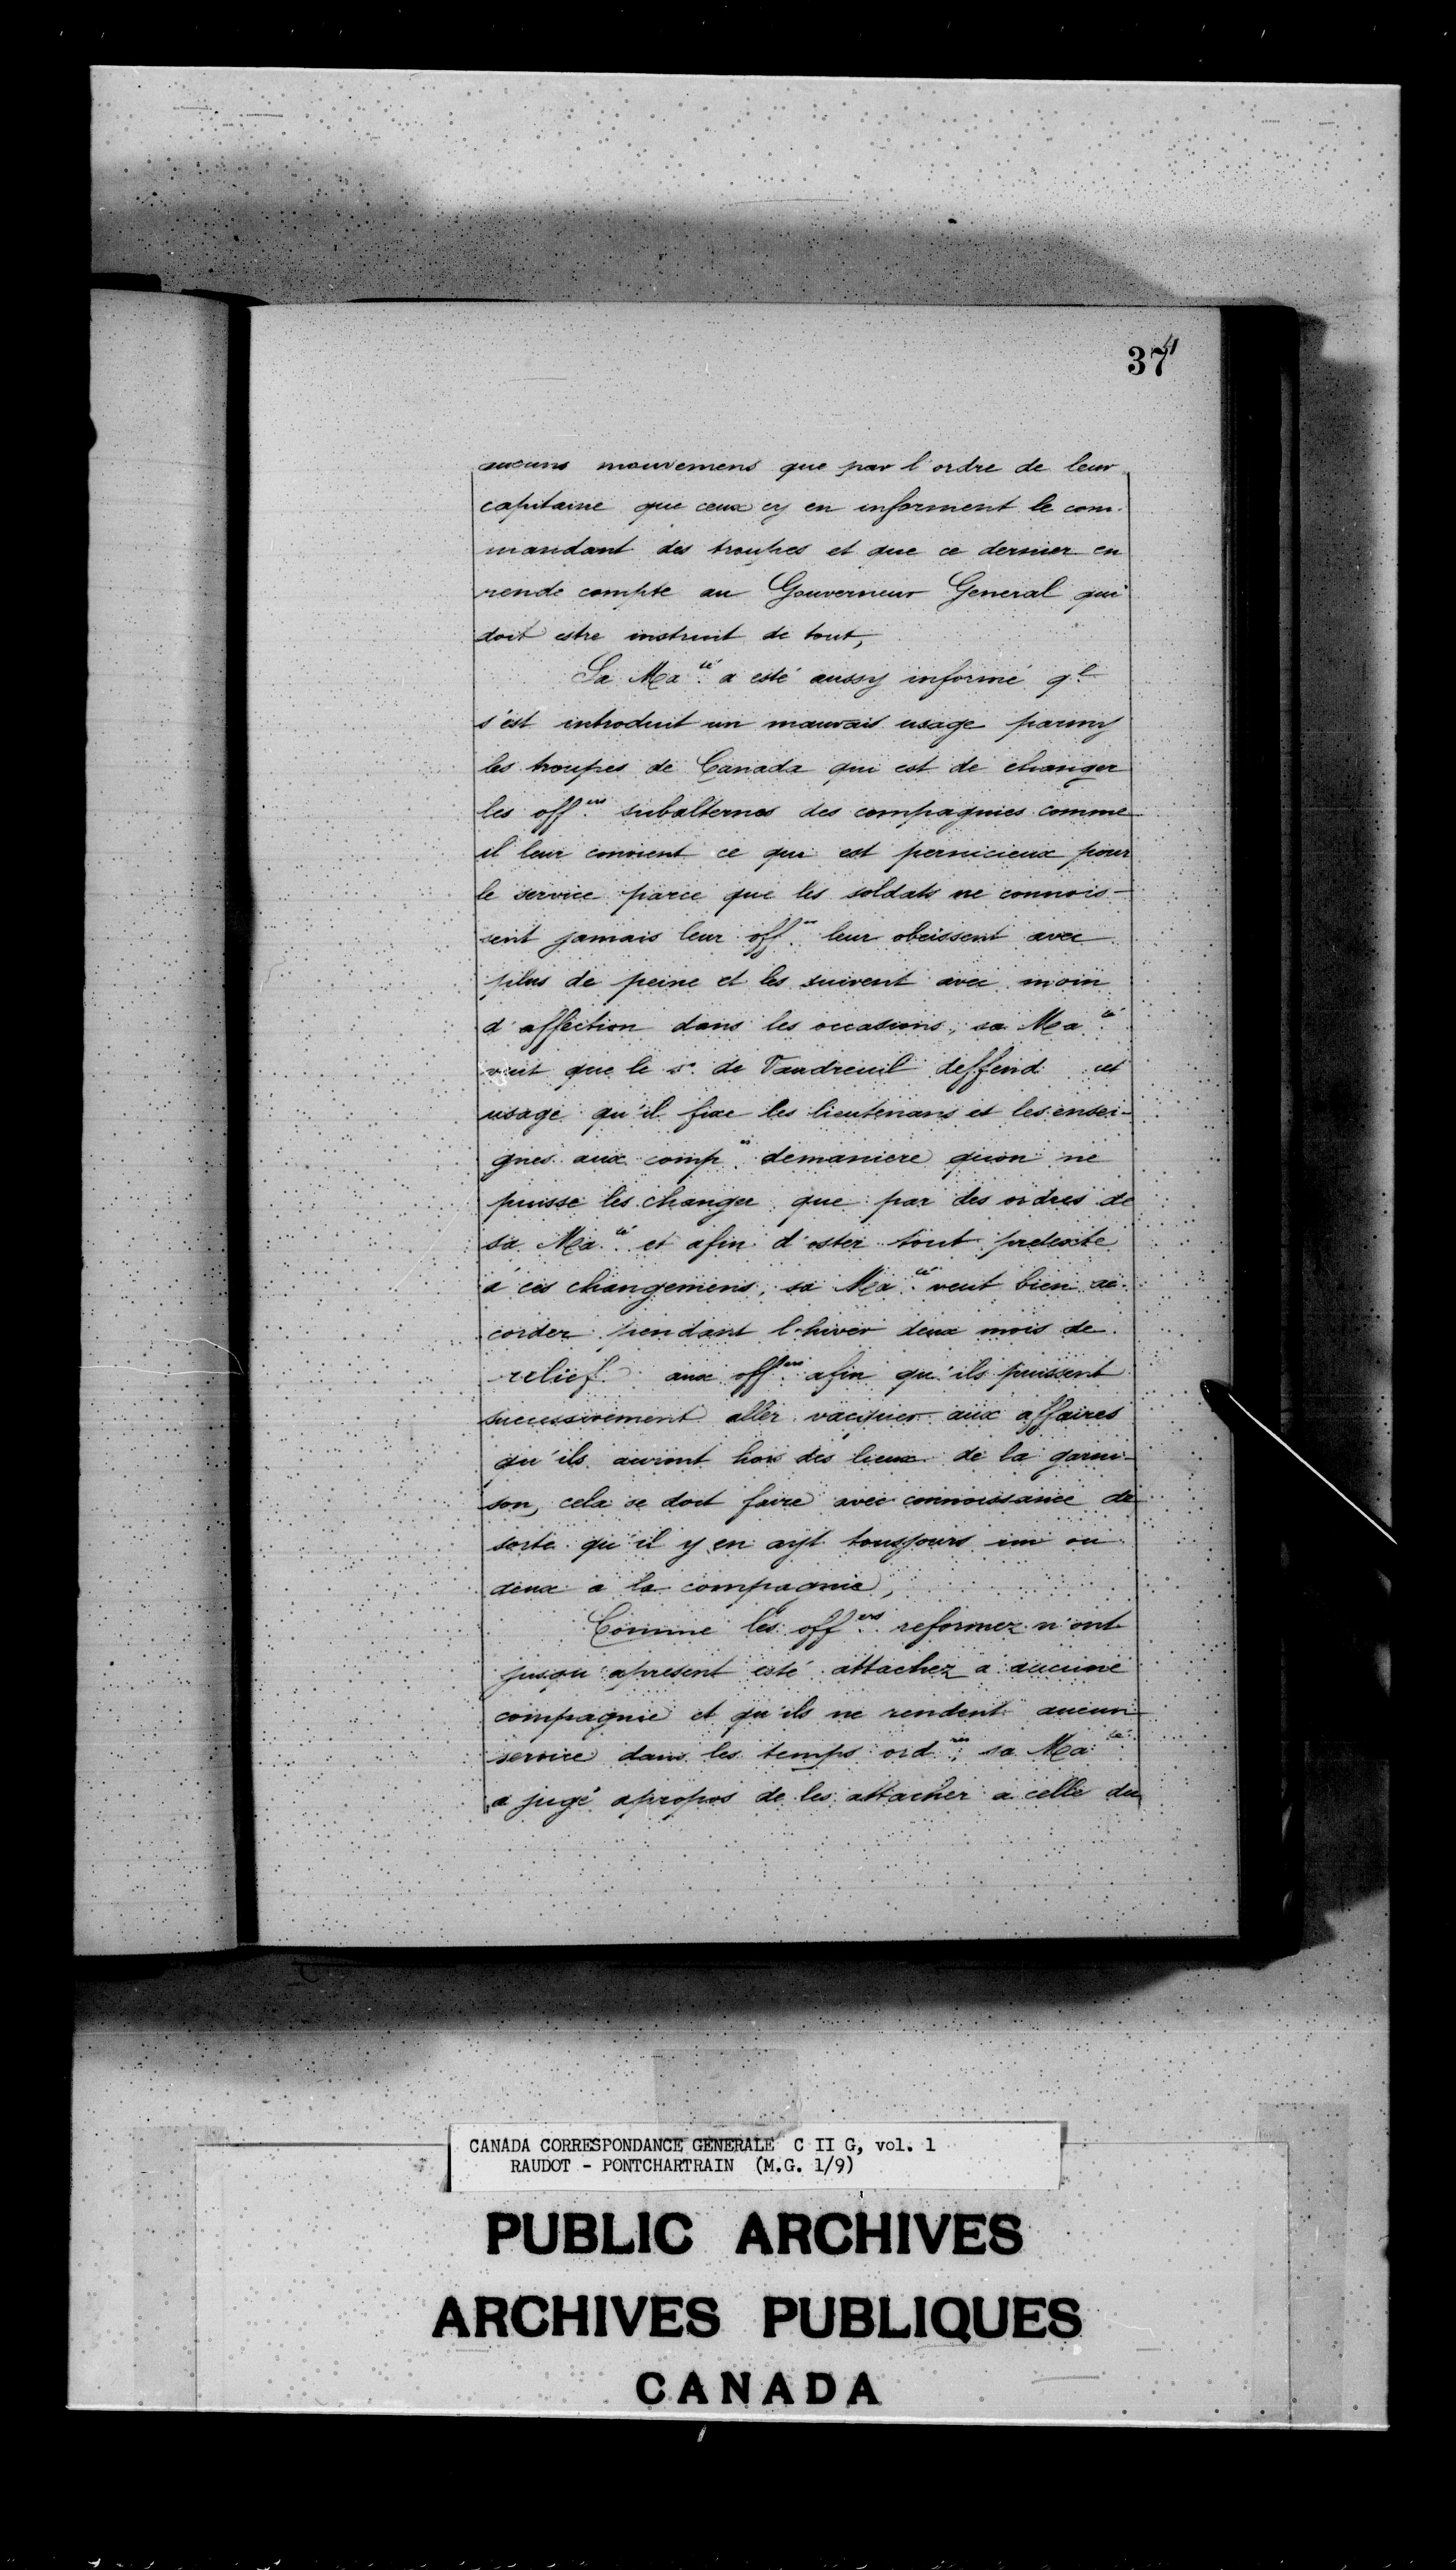 37
aucuns mouvemens que par l'ordre de leur
capitaine que ceux cy en informent le com-
mandant des troupes et que ce dernier en
rende compte au Gouverneur General qui
doit estre instruit de tout,
Sa Ma.té a esté aussy informé q.l
s'est introduit un mauvais usage parmy
les troupes de Canada qui est de changer
les off.ers subalternes des compagnies comme
il leur convient ce qui est pernicieux pour
le service parce que les soldats ne connois-
sent jamais leur off.ers leur obeissent avec
plus de peine et les suivent avec moin
d'affection dans les occasions, sa Ma.té
veut que le s.r de Vaudreuil deffend cet
usage qu'il fixe les lieutenans et les ensei-
gnes aux comp.es demaniere quon ne
puisse les changer que par des ordres de
sa Ma.té et afin d'oster tout pretexte
a ces changemens, sa Ma.té veut bien ac-
corder pendant l'hiver deux mois de
relief aux off.ers afin qu'ils puissent
successivement aller vacquer aux affaires
qu'ils auront hors des lieux de la garni-
son, cela se doit faire avec connoissance de
sorte qu'il y en ayt tousjours un ou
deux a la compagnie,
Comme les off.ers reformez n'ont
jusqu'apresent esté attachez a aucune
compagnie et qu'ils ne rendent aucun
service dans les temps ord.res sa Ma.té
a jugé apropos de les attacher a celle du
CANADA CORRESPONDANCE GENERALE C II G, vol. 1
RAUDOT - PONTCHARTRAIN (M.G. 1/9)
PUBLIC ARCHIVES
ARCHIVES PUBLIQUES
CANADA